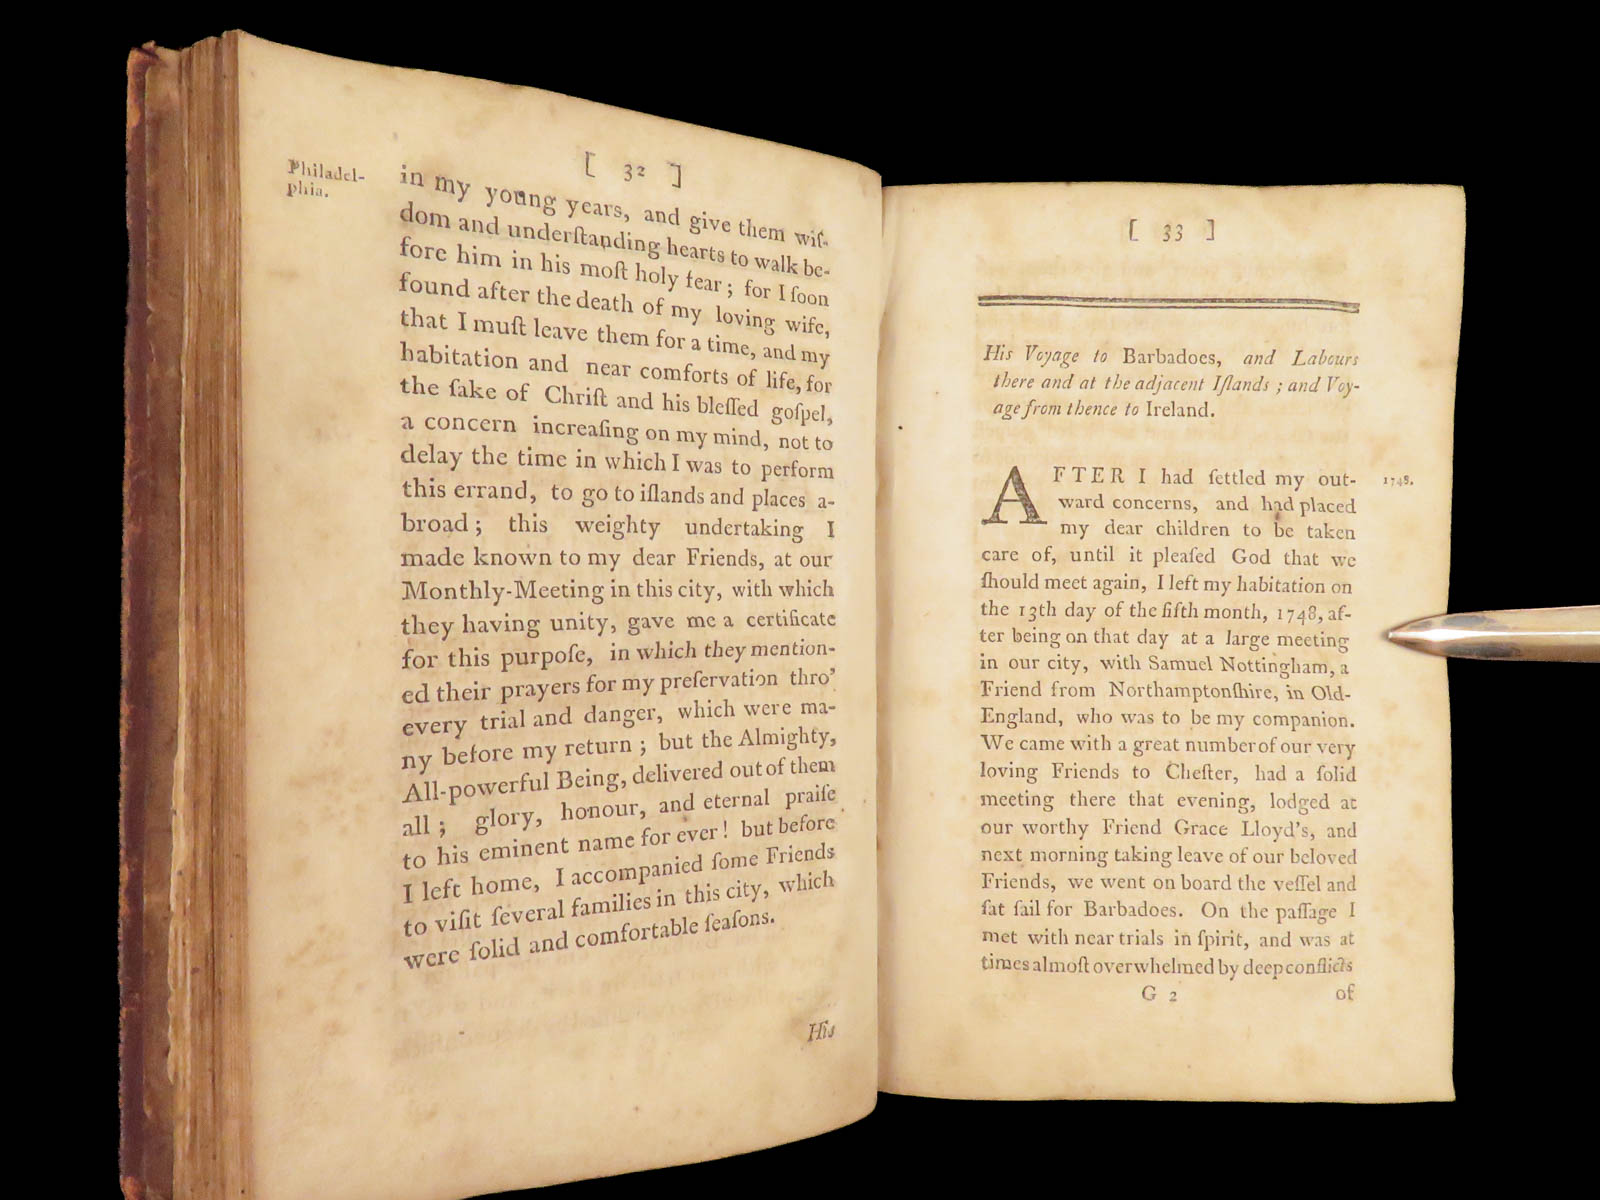 [ 32 ]
Philadel-
phia.
in my young years, and give them wiſ-
dom and underſtanding hearts to walk be-
fore him in his moſt holy fear; for I ſoon
found after the death of my loving wife,
that I muſt leave them for a time, and my
habitation and near comforts of life, for
the ſake of Chriſt and his bleſſed goſpel,
a concern increaſing on my mind, not to
delay the time in which I was to perform
this errand, to go to iſlands and places a-
broad; this weighty undertaking I
made known to my dear Friends, at our
Monthly-Meeting in this city, with which
they having unity, gave me a certificate
for this purpoſe, in which they mention-
ed their prayers for my preſervation thro'
every trial and danger, which were ma-
ny before my return; but the Almighty,
All-powerful Being, delivered out of them
all; glory, honour, and eternal praiſe
to his eminent name for ever! but before
I left home, I accompanied ſome Friends
to viſit ſeveral families in this city, which
were ſolid and comfortable ſeaſons.
His
[ 33 ]
His Voyage to Barbadoes, and Labours
there and at the adjacent Iſlands; and Voy-
age from thence to Ireland.
AFTER I had ſettled my out-
1748.
ward concerns, and had placed
my dear children to be taken
care of, until it pleaſed God that we
ſhould meet again, I left my habitation on
the 13th day of the fifth month, 1748, af-
ter being on that day at a large meeting
in our city, with Samuel Nottingham, a
Friend from Northamptonſhire, in Old-
England, who was to be my companion.
We came with a great number of our very
loving Friends to Cheſter, had a ſolid
meeting there that evening, lodged at
our worthy Friend Grace Lloyd's, and
next morning taking leave of our beloved
Friends, we went on board the veſſel and
ſat ſail for Barbadoes. On the paſſage I
met with near trials in ſpirit, and was at
times almoſt overwhelmed by deep conflicts
G 2
of